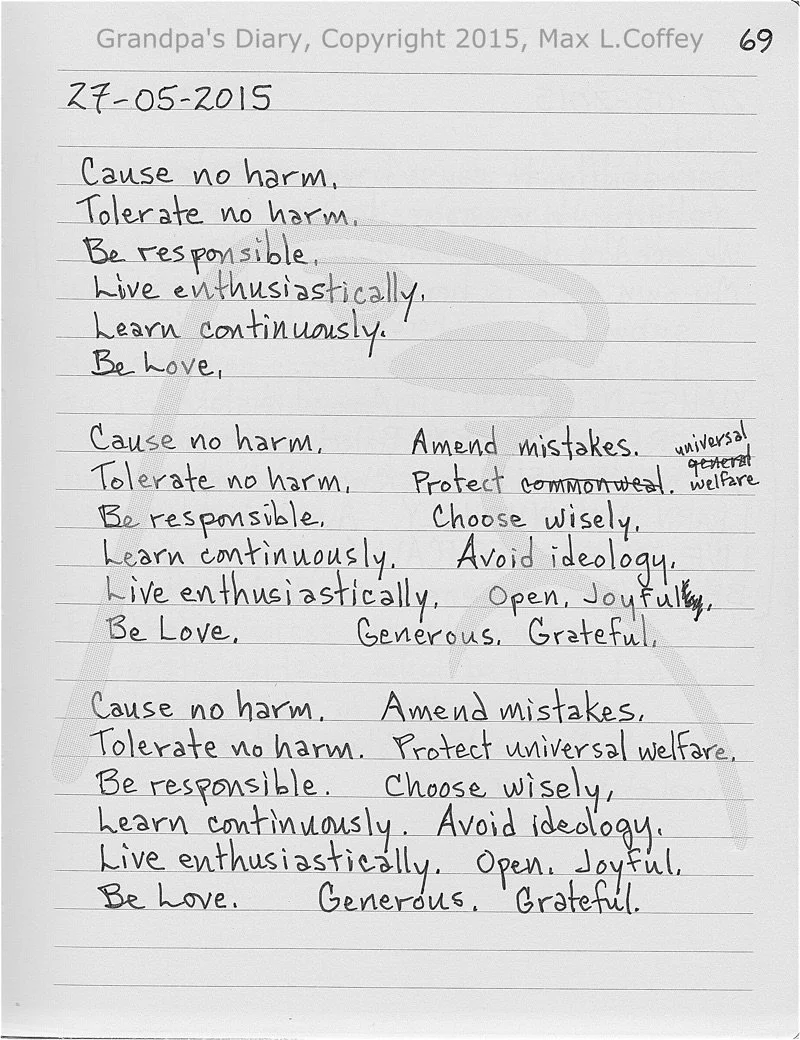 Grandpa's Diary, Copyright 2015, Max L.Coffey 69
27-05-2015
Cause no harm.
Tolerate no harm.
Be responsible.
Live enthusiastically.
Learn continuously.
Be Love.
Cause no harm. Amend mistakes. universal
general
Tolerate no harm. Protect commonweal. welfare
Be responsible. Choose wisely.
Learn continuously. Avoid ideology.
Live enthusiastically. Open. Joyful.
Be Love. Generous. Grateful.
Cause no harm. Amend mistakes.
Tolerate no harm. Protect universal welfare.
Be responsible. Choose wisely,
Learn continuously. Avoid ideology.
Live enthusiastically. Open. Joyful.
Be Love. Generous. Grateful.